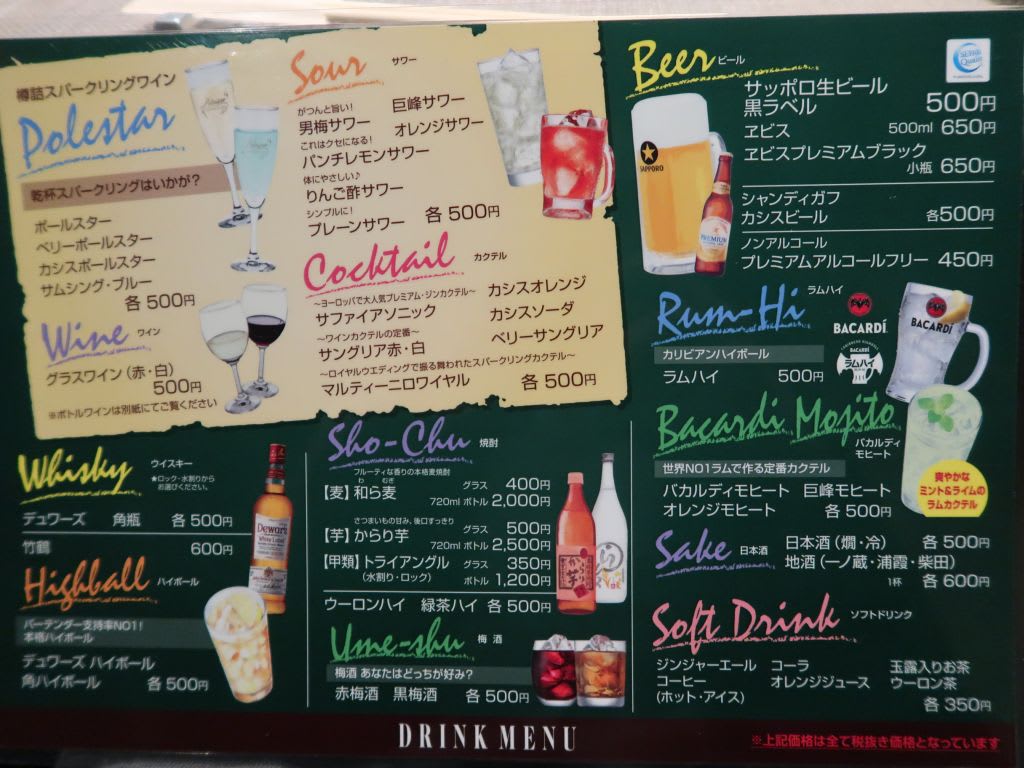 樽詰スパークリングワイン
Polestar
乾杯スパークリングはいかが？
ポールスター
ベリーポールスター
カシスポールスター
サムシング・ブルー
各 500円
Wine ワイン
グラスワイン（赤・白）
500円
※ボトルワインは別紙にてご覧ください
Sour サワー
がつんと旨い！
男梅サワー
巨峰サワー
オレンジサワー
これはクセになる！
パンチレモンサワー
体にやさしい♪
りんご酢サワー
シンプルに！
プレーンサワー 各 500円
Cocktail カクテル
～ヨーロッパで大人気プレミアム・ジンカクテル～
サファイアソニック
カシスオレンジ
カシスソーダ
～ワインカクテルの定番～
サングリア赤・白
ベリーサングリア
～ロイヤルウエディングで振る舞われたスパークリングカクテル～
マルティーニロワイヤル 各 500円
Beer ビール
サッポロ生ビール
黒ラベル 500円
ヱビス 500ml 650円
ヱビスプレミアムブラック
小瓶 650円
シャンディガフ
カシスビール 各500円
ノンアルコール
プレミアムアルコールフリー 450円
SAPPORO
PREMIUM
Rum-Hi ラムハイ
カリビアンハイボール
ラムハイ 500円
BACARDÍ
BACARDÍ
ラムハイ
BACARDÍ
Bacardi Mojito
バカルディ
モヒート
世界NO1ラムで作る定番カクテル
バカルディモヒート 巨峰モヒート
オレンジモヒート 各 500円
爽やかな
ミント＆ライムの
ラムカクテル
Whisky ウイスキー
★ロック・水割りから
お選びください。
デュワーズ 角瓶 各 500円
竹鶴 600円
Dewar's
White Label
Highball ハイボール
バーテンダー支持率NO1！
本格ハイボール
デュワーズ ハイボール
角ハイボール 各 500円
Sho-Chu 焼酎
フルーティな香りの本格麦焼酎
わ むぎ
【麦】和ら麦 グラス 400円
720ml ボトル 2,000円
さつまいもの甘み、後口すっきり
【芋】からり芋 グラス 500円
720ml ボトル 2,500円
【甲類】トライアングル グラス 350円
（水割り・ロック） ボトル 1,200円
ウーロンハイ 緑茶ハイ 各 500円
Ume-shu 梅酒
梅酒 あなたはどっちが好み？
赤梅酒 黒梅酒 各 500円
Sake 日本酒
日本酒（燗・冷） 各 500円
地酒（一ノ蔵・浦霞・柴田）
1杯 各 600円
Soft Drink ソフトドリンク
ジンジャーエール コーラ 玉露入りお茶
コーヒー オレンジジュース ウーロン茶
（ホット・アイス） 各 350円
DRINK MENU
※上記価格は全て税抜き価格となっています